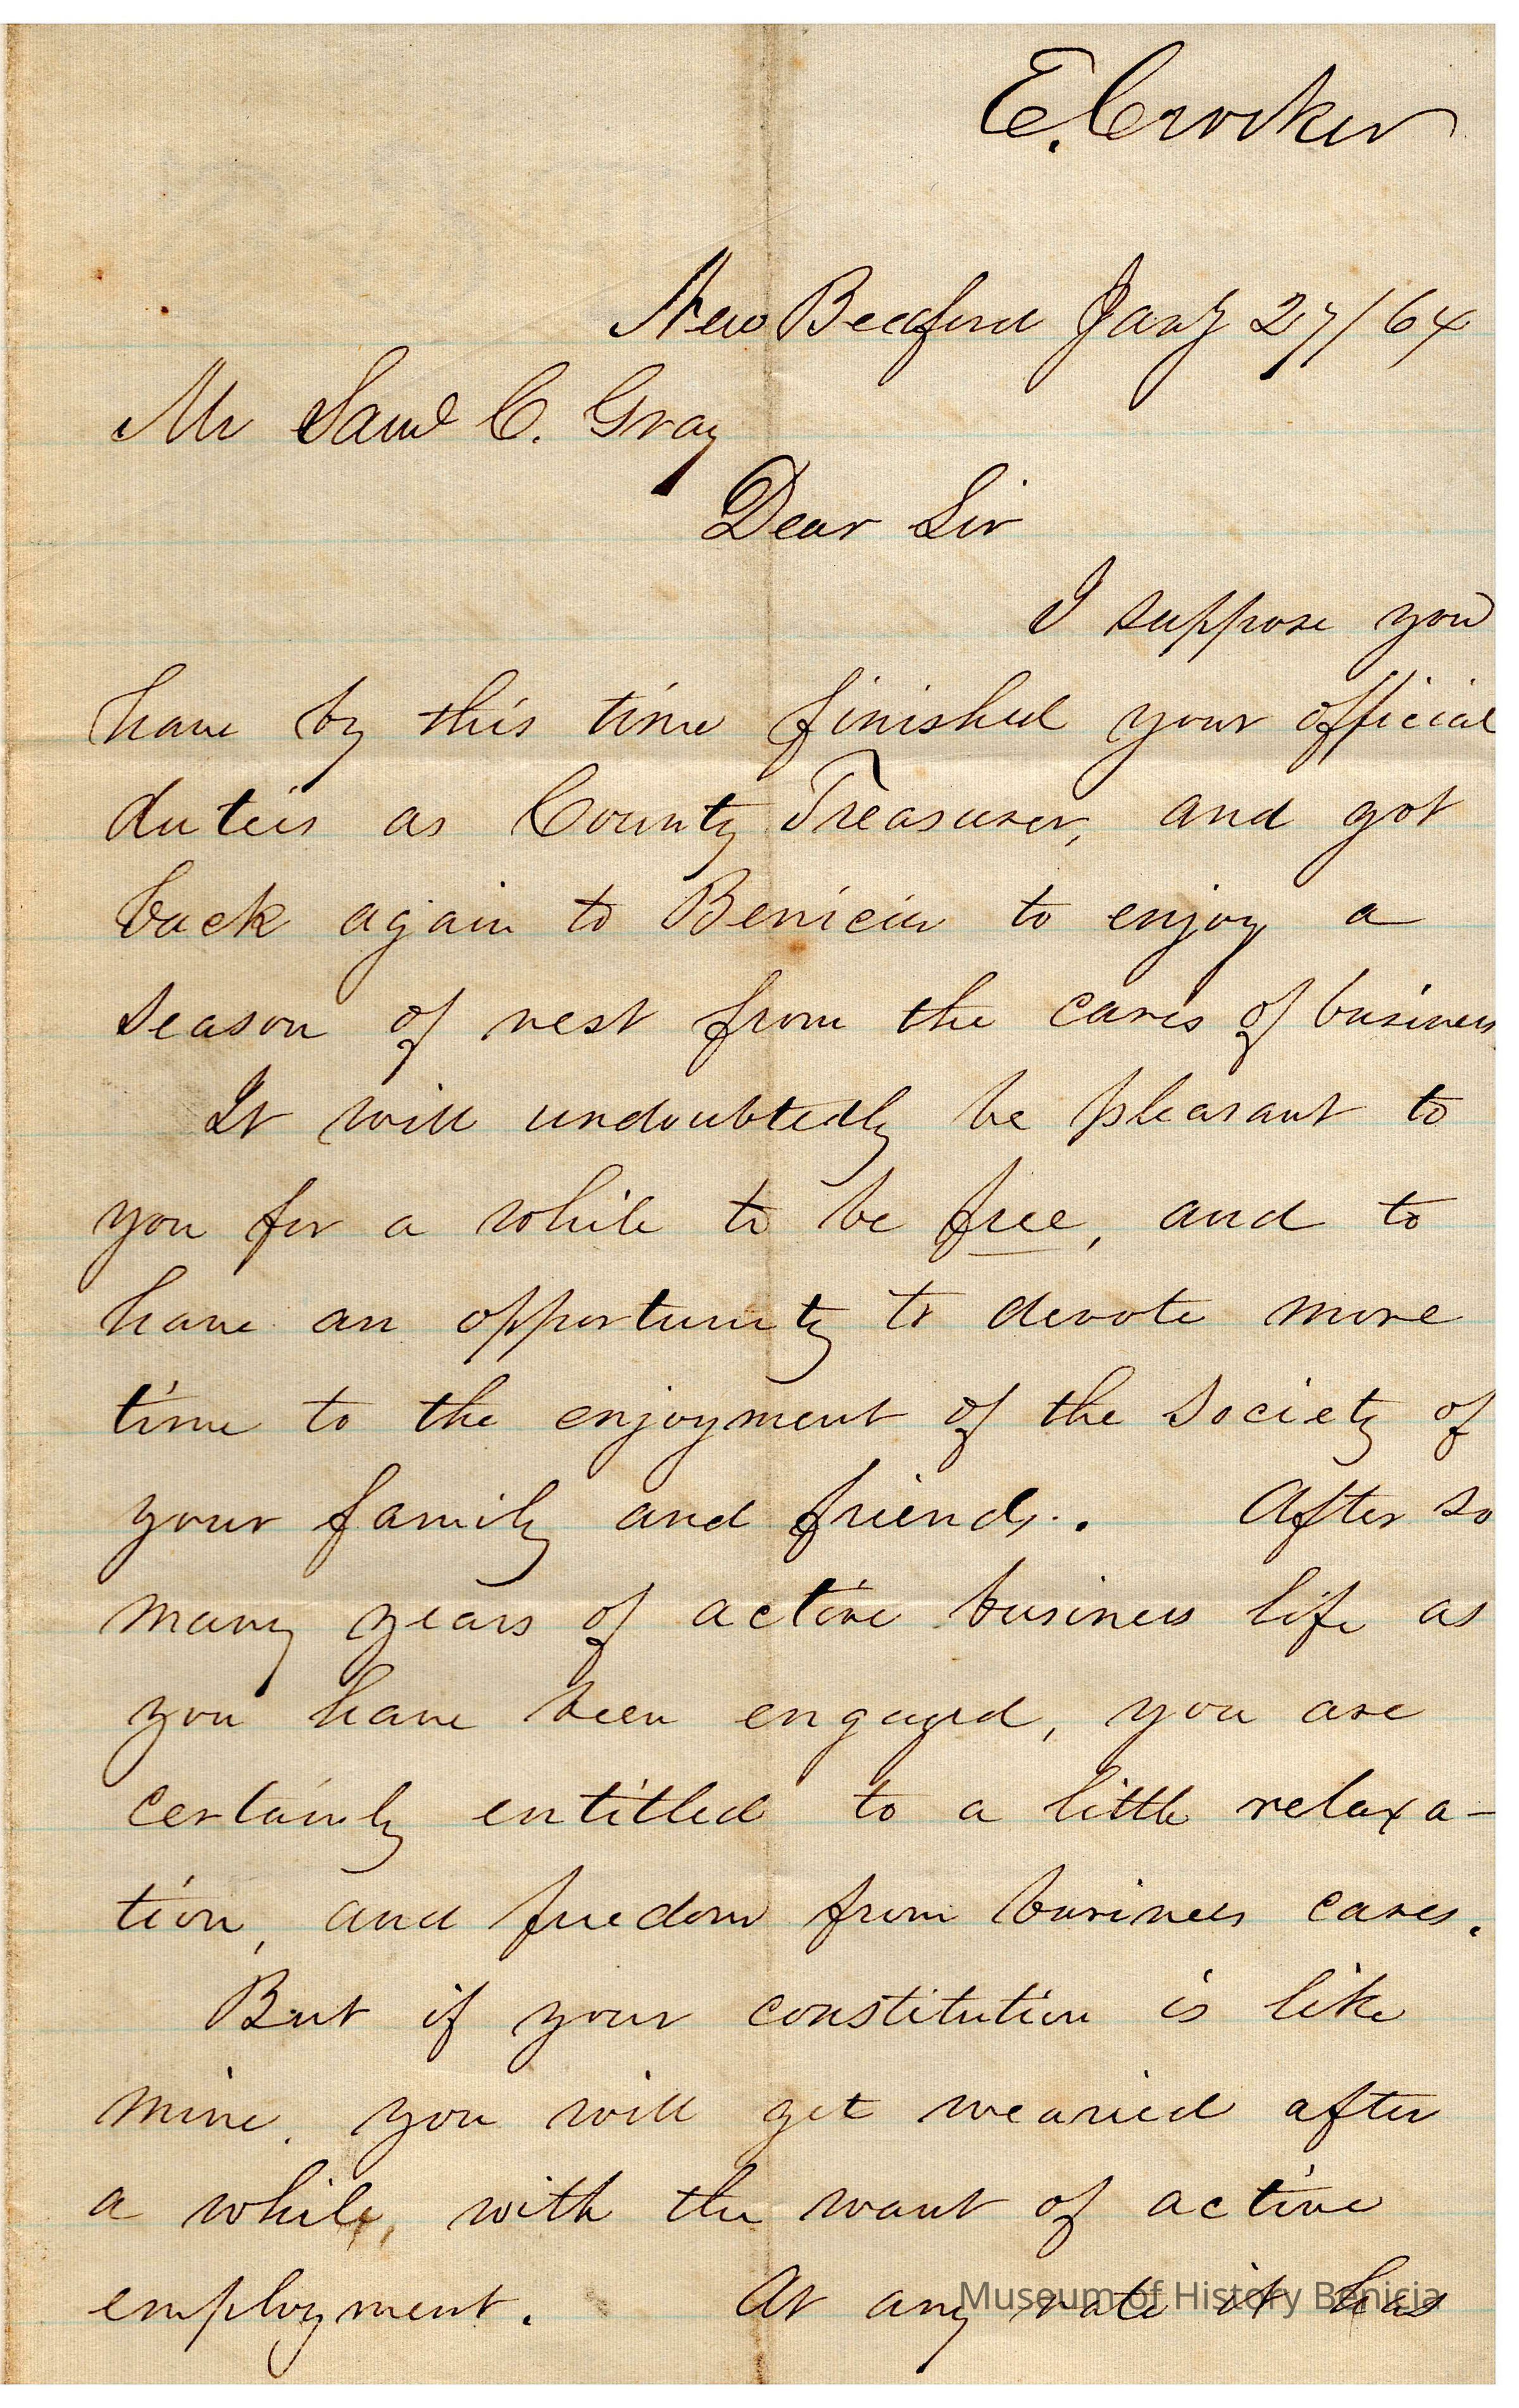 E. Crocker
New Bedford Jany 27/64
Mr Saml C. Gray
Dear Sir
I suppose you
have by this time finished your official
duties as County Treasurer, and got
back again to Benicia to enjoy a
season of rest from the cares of business
It will undoubtedly be pleasant to
you for a while to be free, and to
have an opportunity to devote more
time to the enjoyment of the society of
your family and friends. After so
many years of active business life as
you have been engaged, you are
certainly entitled to a little relaxa-
tion, and freedom from business cares.
But if your constitution is like
mine, you will get wearied after
a while, with the want of active
employment. At any rate it has
Museum of History Benicia